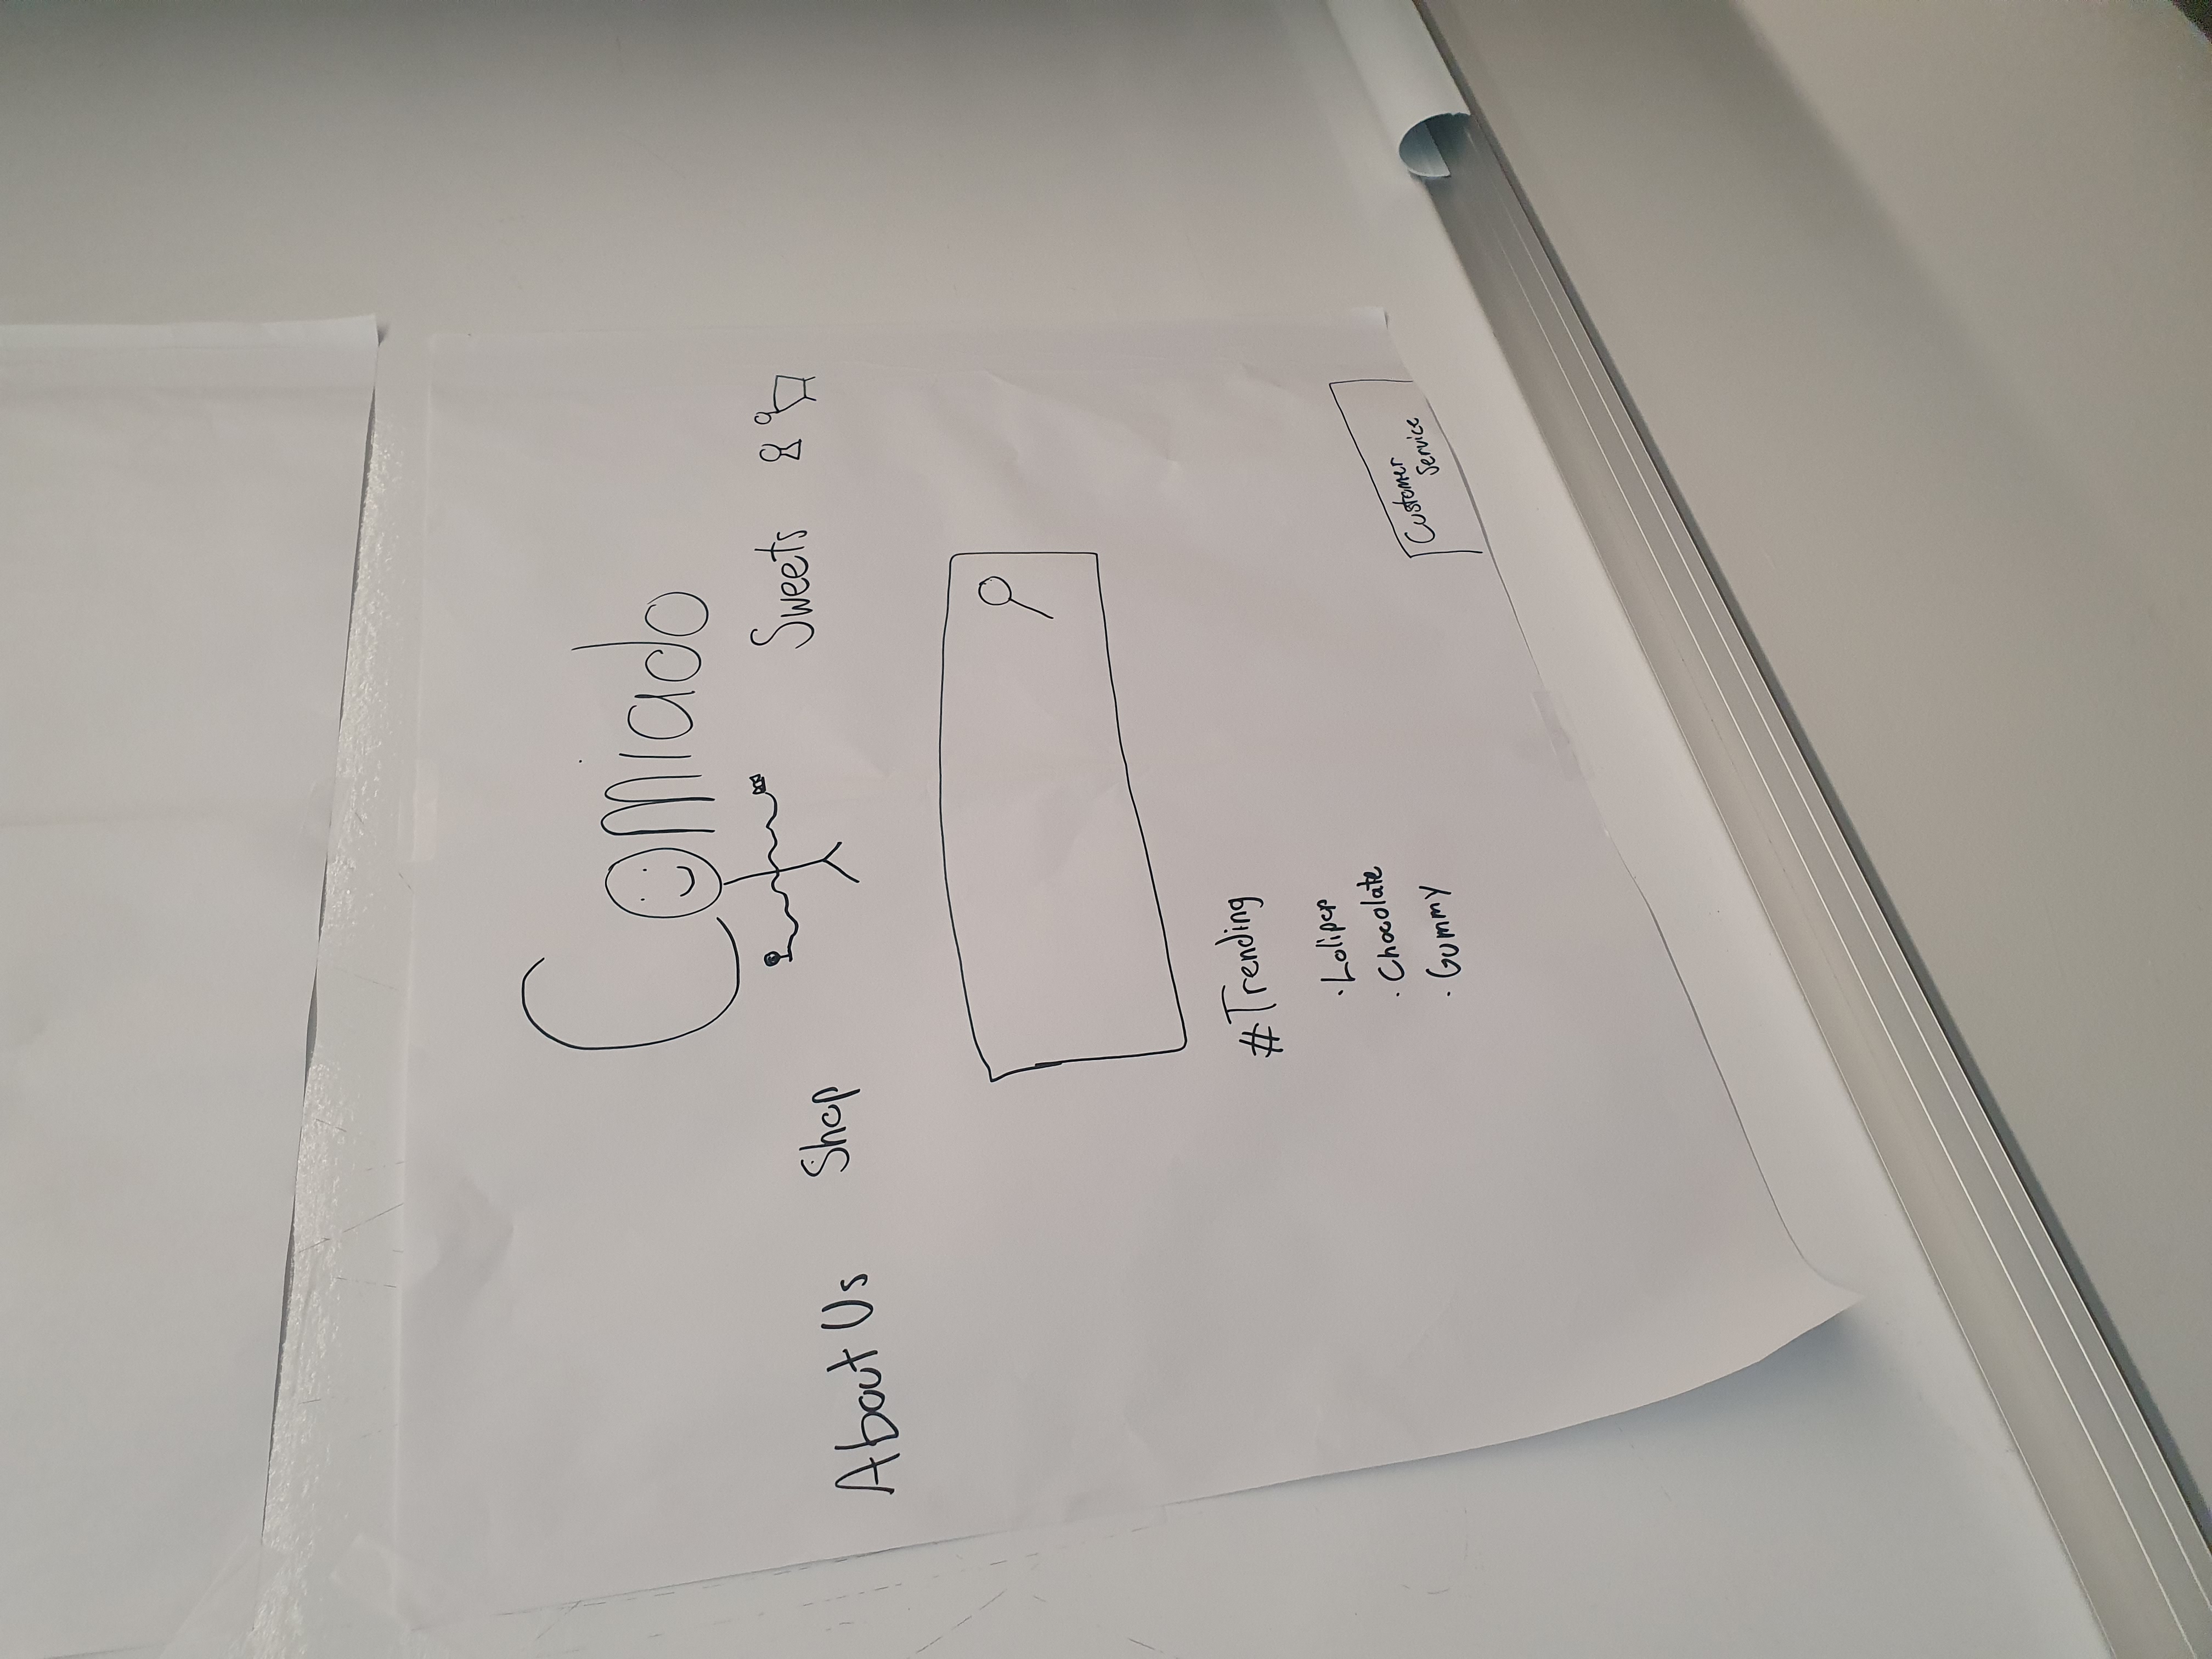 Comiado
About Us Shop Sweets
#Trending
· Lolipop
· Chocolate
· Gummy
Customer
Service